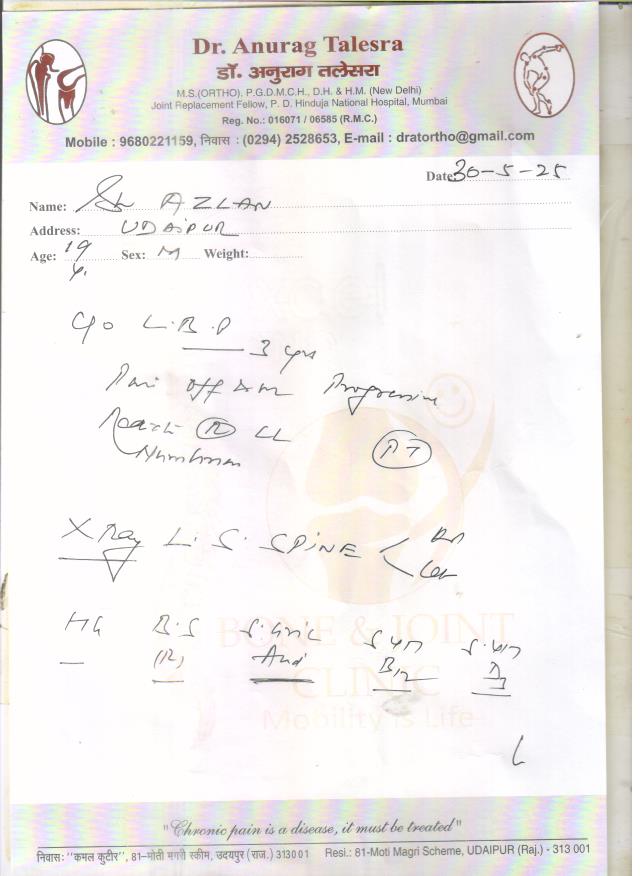 Dr. Anurag Talesra
डॉ. अनुराग तलेसरा
M.S.(ORTHO), P.G.D.M.C.H., D.H. & H.M. (New Delhi)
Joint Replacement Fellow, P. D. Hinduja National Hospital, Mumbai
Reg. No.: 016071 / 06585 (R.M.C.)
Mobile : 9680221159, निवास : (0294) 2528653, E-mail : dratortho@gmail.com
Date: 30-5-25
Name: AZLAN
Address: UDAIPUR
Age: 19 Sex: M Weight:
y.
C/O L.B.P
3 yrs
Progressive
(R) LL
Numbness
X Ray L.S. SPINE
B.S
(R)
B12
BONE & JOINT
CLINIC
Mobility is Life
"Chronic pain is a disease, it must be treated"
निवास: "कमल कुटीर", 81-मोती मगरी स्कीम, उदयपुर (राज.) 313001 Resi.: 81-Moti Magri Scheme, UDAIPUR (Raj.) - 313 001